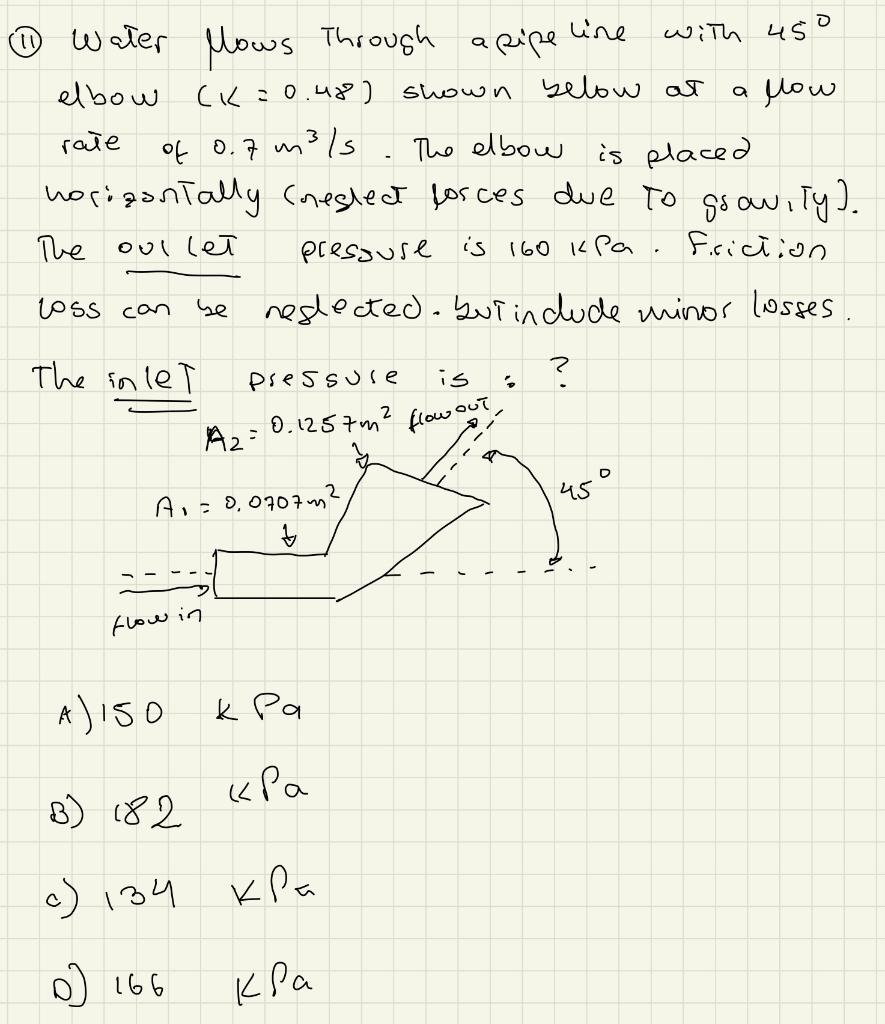 (11) Water flows Through a pipe line with 45°
elbow (K = 0.48) shown below at a flow
rate of 0.7 m³/s . The elbow is placed
horizontally (neglect forces due To gravity).
The outlet pressure is 160 kPa . Friction
loss can be neglected. but include minor losses.
The inleT pressure is : ?
A2 = 0.1257 m² flow out
A1 = 0.0707 m²
45°
flow in
A) 150 kPa
B) 182 kPa
C) 134 kPa
D) 166 kPa